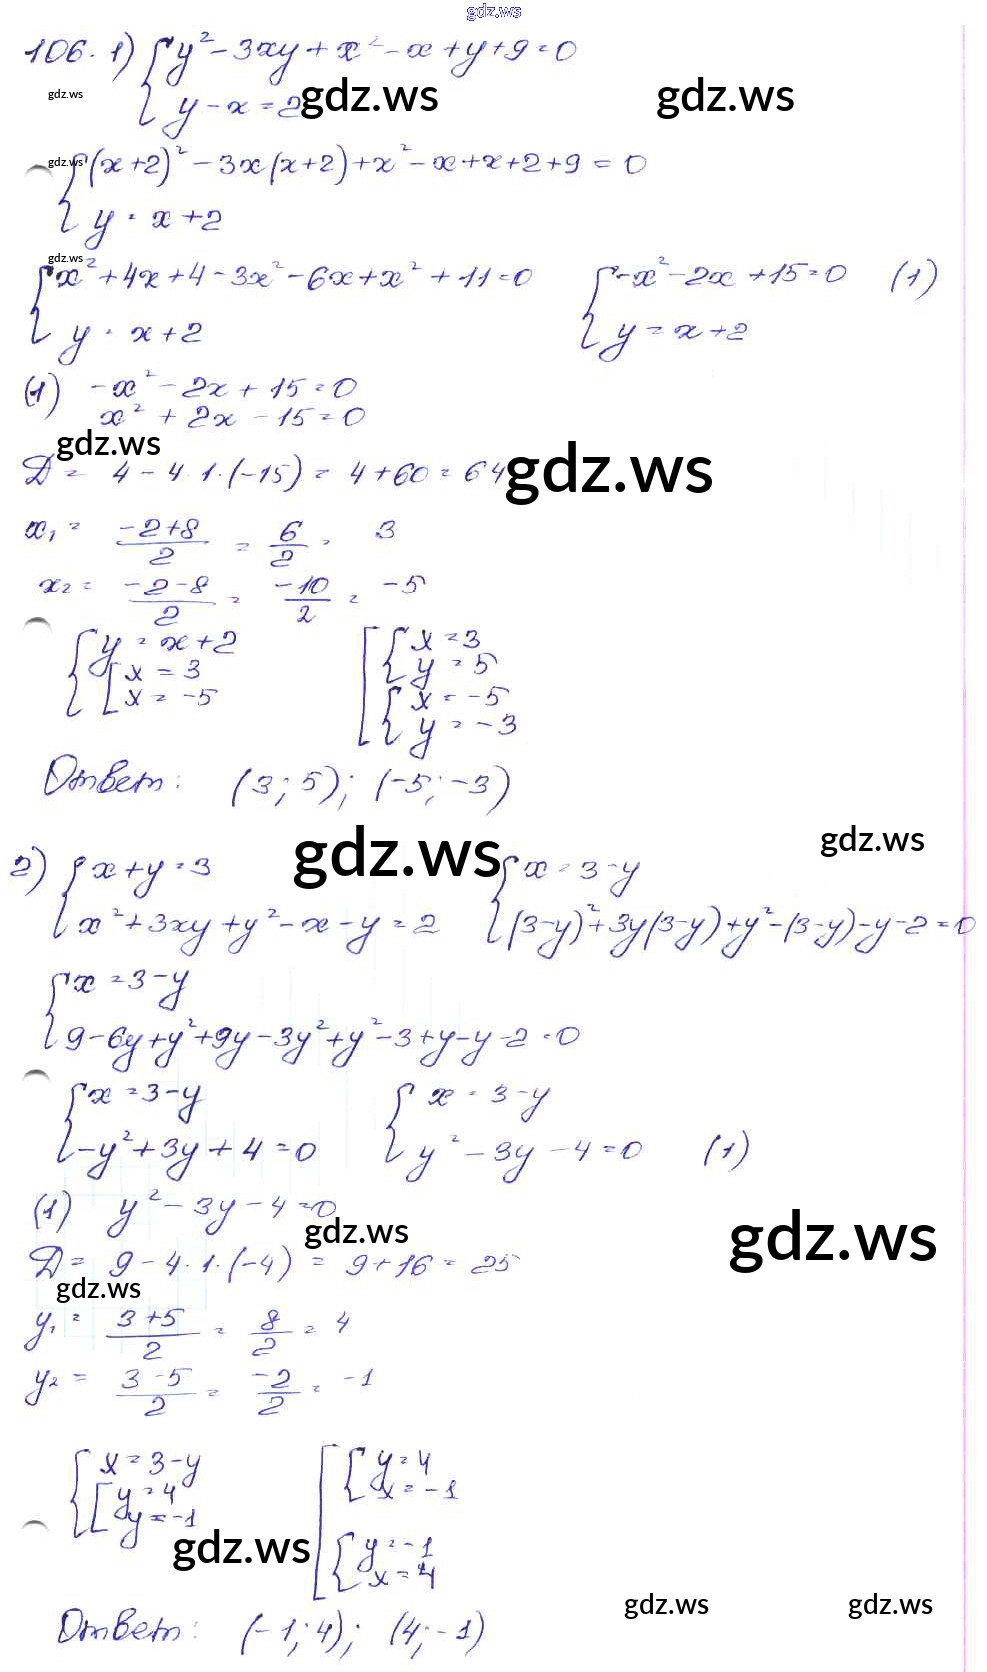 gdz.ws
106. 1) { y² - 3xy + x² - x + y + 9 = 0
gdz.ws { y - x = 2 gdz.ws gdz.ws
gdz.ws { (x+2)² - 3x(x+2) + x² - x + x + 2 + 9 = 0
{ y = x + 2
gdz.ws
{ x² + 4x + 4 - 3x² - 6x + x² + 11 = 0 { -x² - 2x + 15 = 0 (1)
{ y = x + 2 { y = x + 2
(1) -x² - 2x + 15 = 0
x² + 2x - 15 = 0
gdz.ws
Д = 4 - 4·1·(-15) = 4 + 60 = 64 gdz.ws
x₁ = (-2+8)/2 = 6/2 = 3
x₂ = (-2-8)/2 = -10/2 = -5
{ y = x + 2 [ { x = 3
[ x = 3 { y = 5
[ x = -5 { x = -5
{ y = -3
Ответ: (3; 5); (-5; -3)
gdz.ws gdz.ws
2) { x + y = 3 { x = 3 - y
{ x² + 3xy + y² - x - y = 2 { (3-y)² + 3y(3-y) + y² - (3-y) - y - 2 = 0
{ x = 3 - y
{ 9 - 6y + y² + 9y - 3y² + y² - 3 + y - y - 2 = 0
{ x = 3 - y { x = 3 - y
{ -y² + 3y + 4 = 0 { y² - 3y - 4 = 0 (1)
(1) y² - 3y - 4 = 0
gdz.ws gdz.ws
Д = 9 - 4·1·(-4) = 9 + 16 = 25
gdz.ws
y₁ = (3+5)/2 = 8/2 = 4
y₂ = (3-5)/2 = -2/2 = -1
{ x = 3 - y [ { y = 4
[ y = 4 { x = -1
[ y = -1
gdz.ws { y = -1
{ x = 4
gdz.ws gdz.ws
Ответ: (-1; 4); (4; -1)